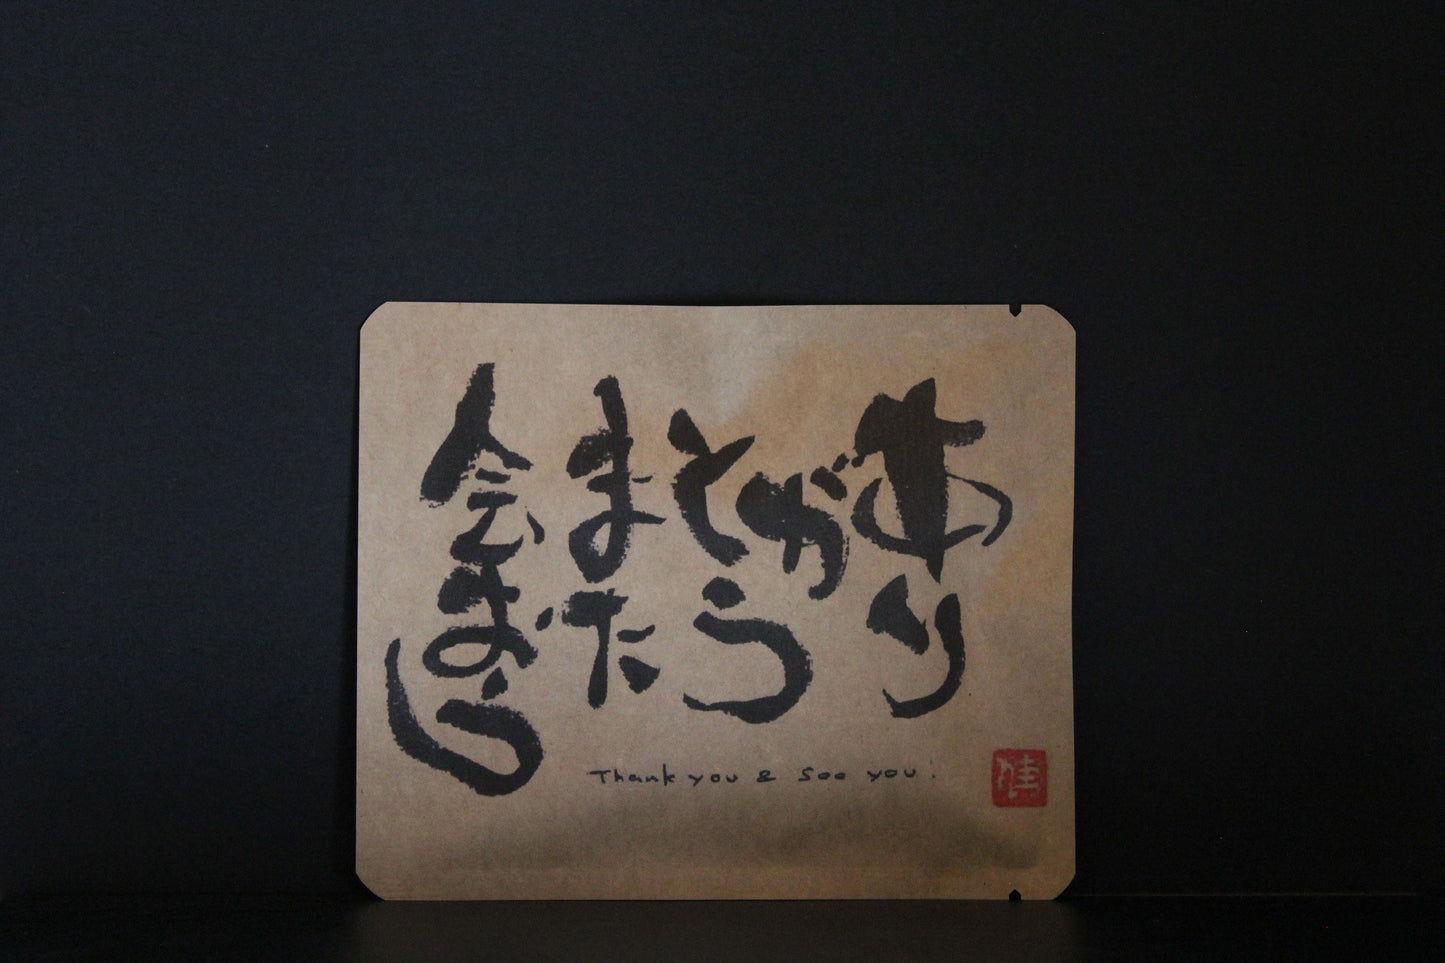 あり
がとう
また
会おう
Thank you & See you!
佳